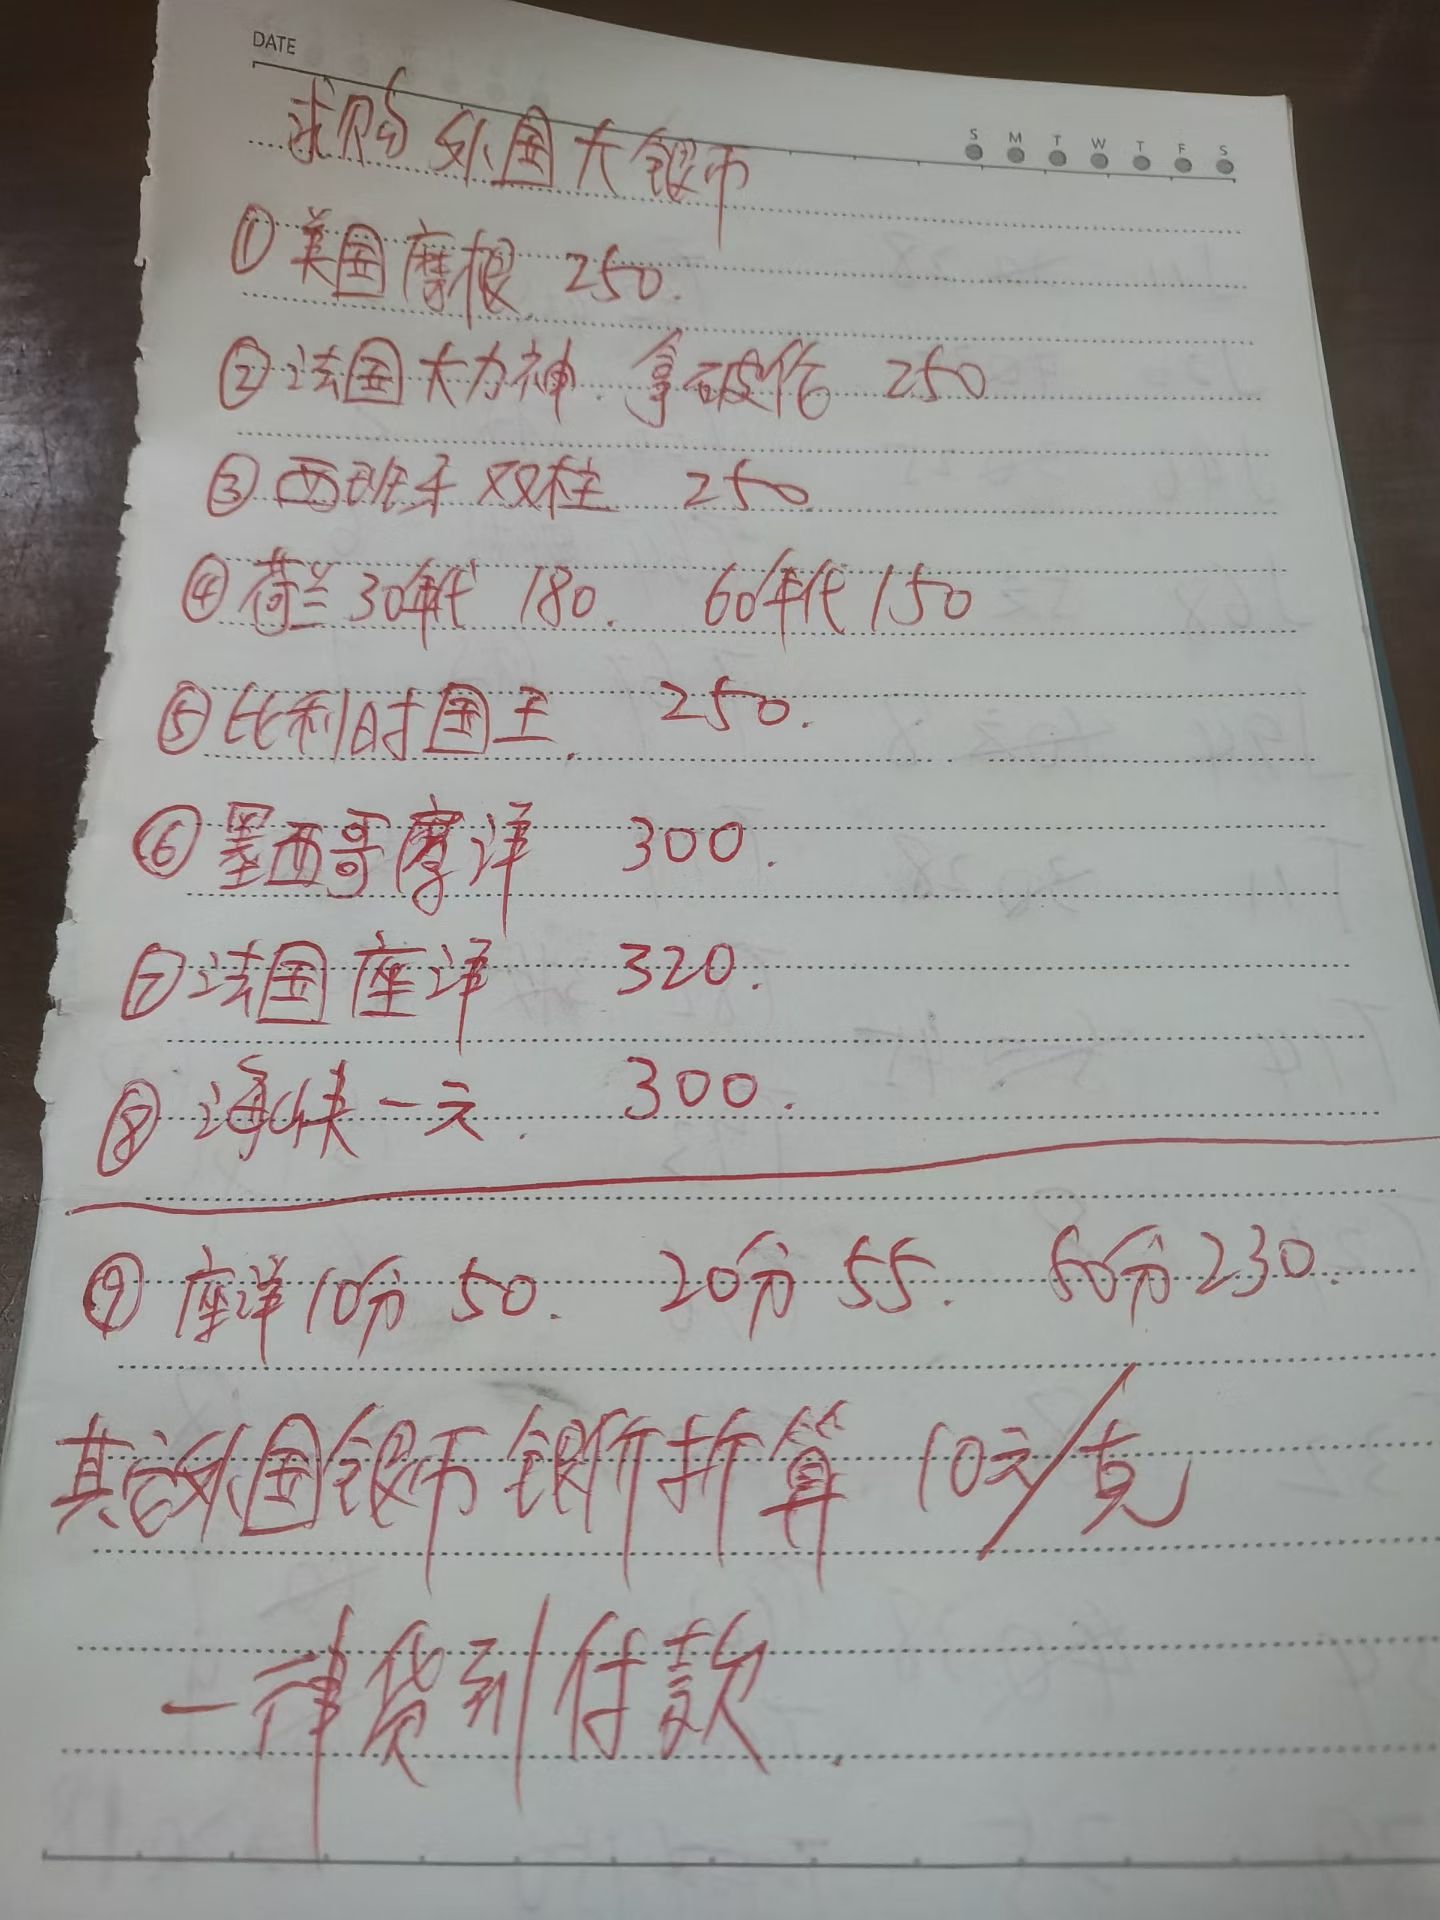 DATE
S M T W T F S
求购外国大银币
①美国摩根 250.
②法国大力神.拿破伦 250
③西班牙双柱 250
④荷兰30年代 180. 60年代150
⑤比利时国王. 250.
⑥墨西哥摩洋 300.
⑦法国座洋 320.
⑧海峡一元. 300.
⑨座洋10分 50. 20分 55. 50分230.
其它外国银币银价折算 10元/克
一律货到付款